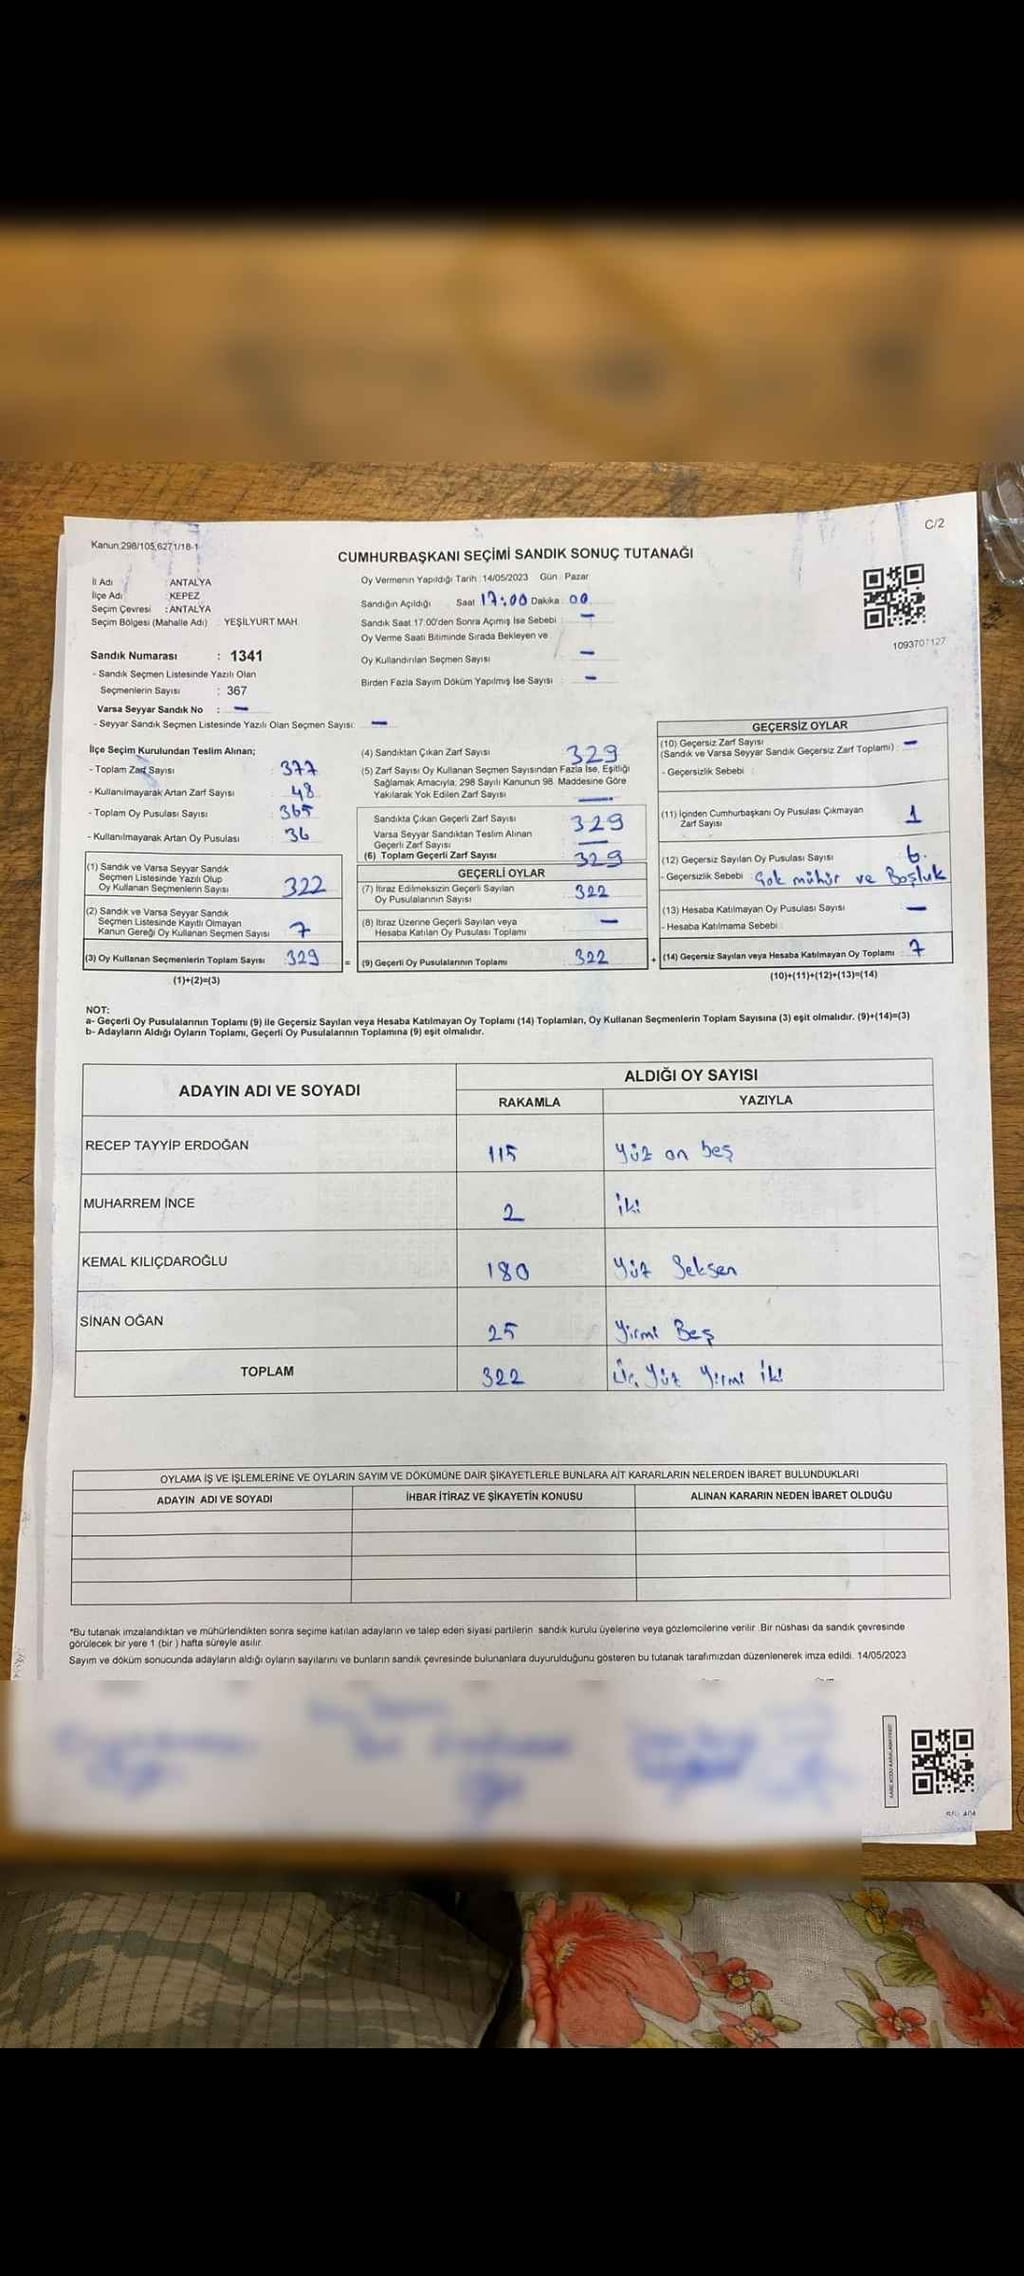 C/2
Kanun:298/105,6271/18-1
CUMHURBAŞKANI SEÇİMİ SANDIK SONUÇ TUTANAĞI
İl Adı : ANTALYA
İlçe Adı : KEPEZ
Seçim Çevresi : ANTALYA
Seçim Bölgesi (Mahalle Adı) : YEŞİLYURT MAH.
Oy Vermenin Yapıldığı Tarih :14/05/2023 Gün : Pazar
Sandığın Açıldığı Saat 17:00 Dakika : 00
Sandık Saat 17.00'den Sonra Açımış İse Sebebi : -
Oy Verme Saati Bitiminde Sırada Bekleyen ve
Oy Kullandırılan Seçmen Sayısı -
Birden Fazla Sayım Döküm Yapılmış İse Sayısı : -
Sandık Numarası : 1341
- Sandık Seçmen Listesinde Yazılı Olan
Seçmenlerin Sayısı : 367
Varsa Seyyar Sandık No : -
- Seyyar Sandık Seçmen Listesinde Yazılı Olan Seçmen Sayısı: -
İlçe Seçim Kurulundan Teslim Alınan;
- Toplam Zarf Sayısı 377
- Kullanılmayarak Artan Zarf Sayısı 48
- Toplam Oy Pusulası Sayısı : 365
- Kullanılmayarak Artan Oy Pusulası 36
(1) Sandık ve Varsa Seyyar Sandık
Seçmen Listesinde Yazılı Olup
Oy Kullanan Seçmenlerin Sayısı 322
(2) Sandık ve Varsa Seyyar Sandık
Seçmen Listesinde Kayıtlı Olmayan
Kanun Gereği Oy Kullanan Seçmen Sayısı 7
(3) Oy Kullanan Seçmenlerin Toplam Sayısı 329
(1)+(2)=(3)
=
(4) Sandıktan Çıkan Zarf Sayısı 329
(5) Zarf Sayısı Oy Kullanan Seçmen Sayısından Fazla İse, Eşitliği
Sağlamak Amacıyla; 298 Sayılı Kanunun 98. Maddesine Göre
Yakılarak Yok Edilen Zarf Sayısı -
Sandıkta Çıkan Geçerli Zarf Sayısı 329
Varsa Seyyar Sandıktan Teslim Alınan
Geçerli Zarf Sayısı -
(6) Toplam Geçerli Zarf Sayısı 329
GEÇERLİ OYLAR
(7) İtiraz Edilmeksizin Geçerli Sayılan
Oy Pusulalarının Sayısı 322
(8) İtiraz Üzerine Geçerli Sayılan veya
Hesaba Katılan Oy Pusulası Toplamı -
(9) Geçerli Oy Pusulalarının Toplamı 322
+
GEÇERSİZ OYLAR
(10) Geçersiz Zarf Sayısı
(Sandık ve Varsa Seyyar Sandık Geçersiz Zarf Toplamı) : -
- Geçersizlik Sebebi :
(11) İçinden Cumhurbaşkanı Oy Pusulası Çıkmayan
Zarf Sayısı 1
(12) Geçersiz Sayılan Oy Pusulası Sayısı : 6
- Geçersizlik Sebebi : Çok mühür ve Boşluk
(13) Hesaba Katılmayan Oy Pusulası Sayısı : -
- Hesaba Katılmama Sebebi :
(14) Geçersiz Sayılan veya Hesaba Katılmayan Oy Toplamı : 7
(10)+(11)+(12)+(13)=(14)
NOT:
a- Geçerli Oy Pusulalarının Toplamı (9) ile Geçersiz Sayılan veya Hesaba Katılmayan Oy Toplamı (14) Toplamları, Oy Kullanan Seçmenlerin Toplam Sayısına (3) eşit olmalıdır. (9)+(14)=(3)
b- Adayların Aldığı Oyların Toplamı, Geçerli Oy Pusulalarının Toplamına (9) eşit olmalıdır.
ADAYIN ADI VE SOYADI
ALDIĞI OY SAYISI
RAKAMLA YAZIYLA
RECEP TAYYİP ERDOĞAN 115 Yüz on beş
MUHARREM İNCE 2 iki
KEMAL KILIÇDAROĞLU 180 Yüz Seksen
SİNAN OĞAN 25 Yirmi Beş
TOPLAM 322 Üç Yüz Yirmi İki
OYLAMA İŞ VE İŞLEMLERİNE VE OYLARIN SAYIM VE DÖKÜMÜNE DAİR ŞİKAYETLERLE BUNLARA AİT KARARLARIN NELERDEN İBARET BULUNDUKLARI
ADAYIN ADI VE SOYADI İHBAR İTİRAZ VE ŞİKAYETİN KONUSU ALINAN KARARIN NEDEN İBARET OLDUĞU
*Bu tutanak imzalandıktan ve mühürlendikten sonra seçime katılan adayların ve talep eden siyasi partilerin sandık kurulu üyelerine veya gözlemcilerine verilir. Bir nüshası da sandık çevresinde
görülecek bir yere 1 (bir ) hafta süreyle asılır.
Sayım ve döküm sonucunda adayların aldığı oyların sayılarını ve bunların sandık çevresinde bulunanlara duyurulduğunu gösteren bu tutanak tarafımızdan düzenlenerek imza edildi. 14/05/2023